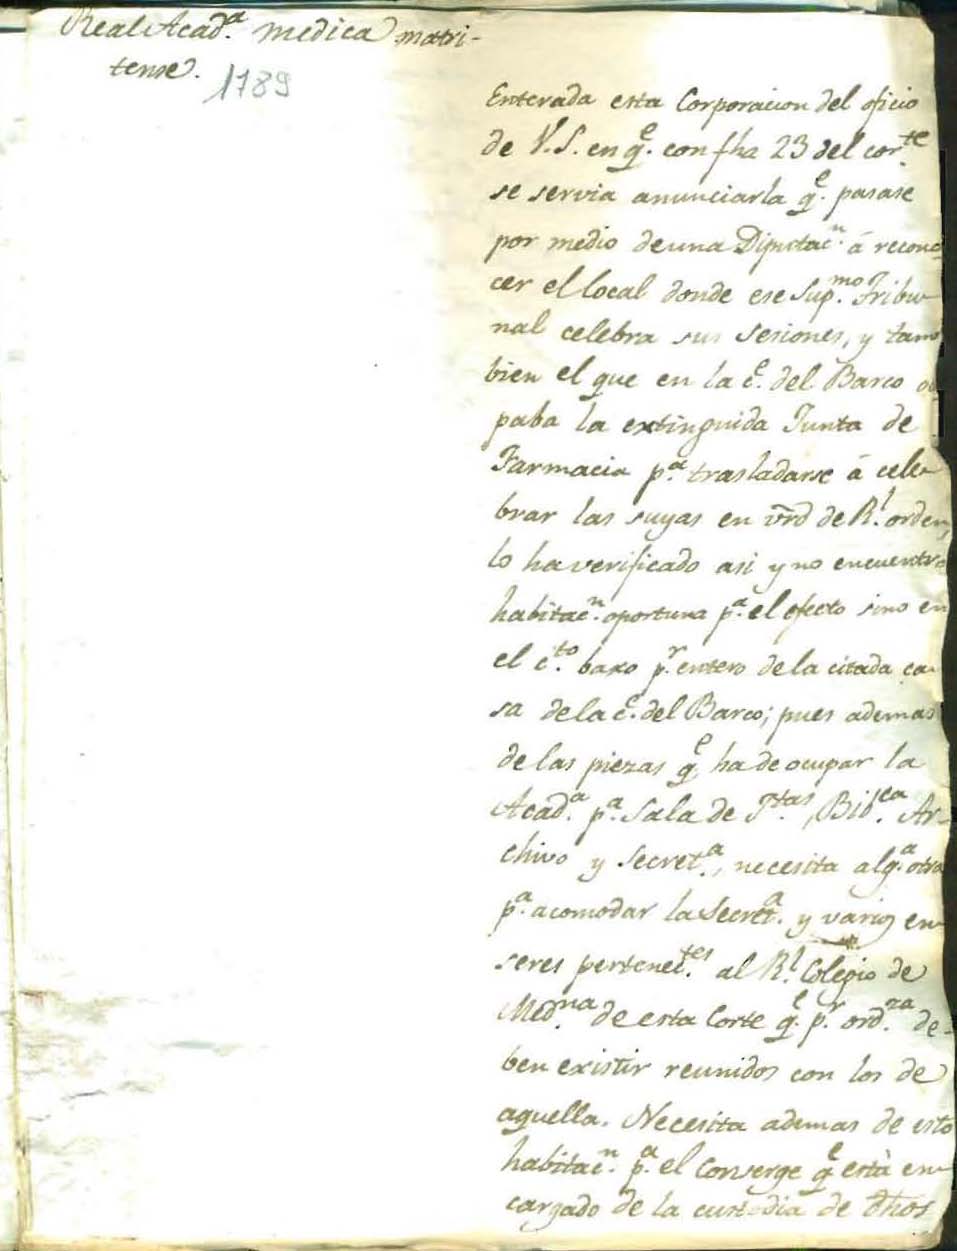 Real Acad.ª medica matri-
tense.
1789
Enterada esta Corporacion del oficio
de V.S. en q.e con fha 23 del cor.te
se servia anunciarla q.e pasase
por medio de una Diputac.n á recono-
cer el local donde ese Sup.mo Tribu-
nal celebra sus sesiones, y tam
bien el que en la c.e del Barco ocu
paba la extinguida Junta de
Farmacia p.a trasladarse á cele-
brar las suyas en vrd de R.l orden,
lo ha verificado asi y no encuentra
habitac.n oportuna p.a el efecto sino en
el c.to baxo p.r entero de la citada ca-
sa de la c.e del Barco; pues ademas
de las piezas q.e ha de ocupar la
Acad.a p.a Sala de J.tas, Bib.ca Ar-
chivo y Secret.a, necesita alg.a otra
p.a acomodar la Secret.a y varios en-
seres pertenec.tes al R.l Colegio de
Med.na de esta Corte q.e p.r ord.za de-
ben existir reunidos con los de
aquella. Necesita ademas de esto
habitac.n p.a el Conserge q.e està en-
cargado de la custodia de dhos